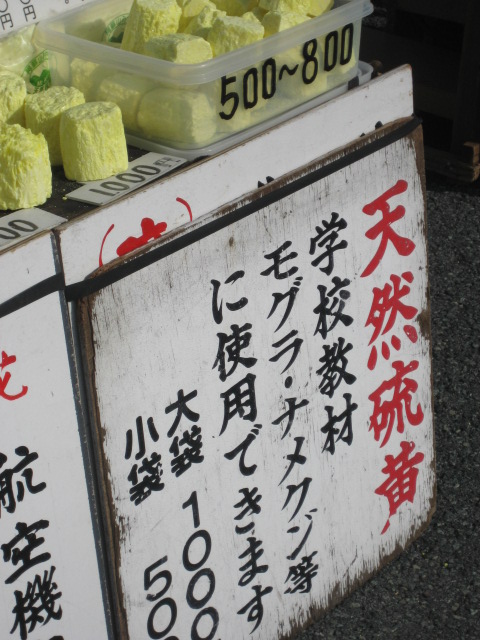 500~800
1000円
00
天然硫黄
学校教材
モグラ・ナメクジ等
に使用できます
大袋 1000
小袋 500
花
航空機